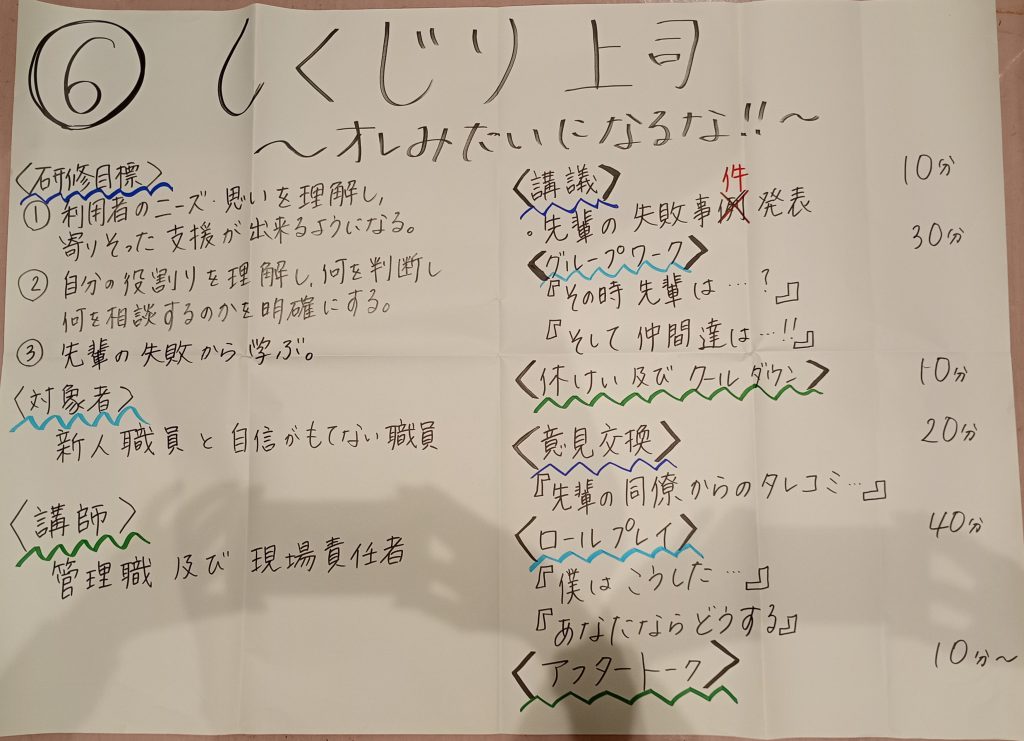 ⑥ しくじり上司
～オレみたいになるな!!～
〈研修目標〉
① 利用者のニーズ・思いを理解し、
寄りそった支援が出来るようになる。
② 自分の役割りを理解し、何を判断し
何を相談するのかを明確にする。
③ 先輩の失敗から学ぶ。
〈対象者〉
新人職員と自信がもてない職員
〈講師〉
管理職及び現場責任者
〈講議〉 10分
件
・先輩の失敗事例発表
〈グループワーク〉 30分
『その時先輩は…？』
『そして仲間達は…!!』
〈休けい及びクールダウン〉 10分
〈意見交換〉 20分
『先輩の同僚からのタレコミ…』
〈ロールプレイ〉 40分
『僕はこうした…』
『あなたならどうする』
〈アフタートーク〉 10分～